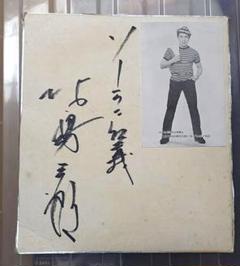 ソーラン仁義
北島三郎